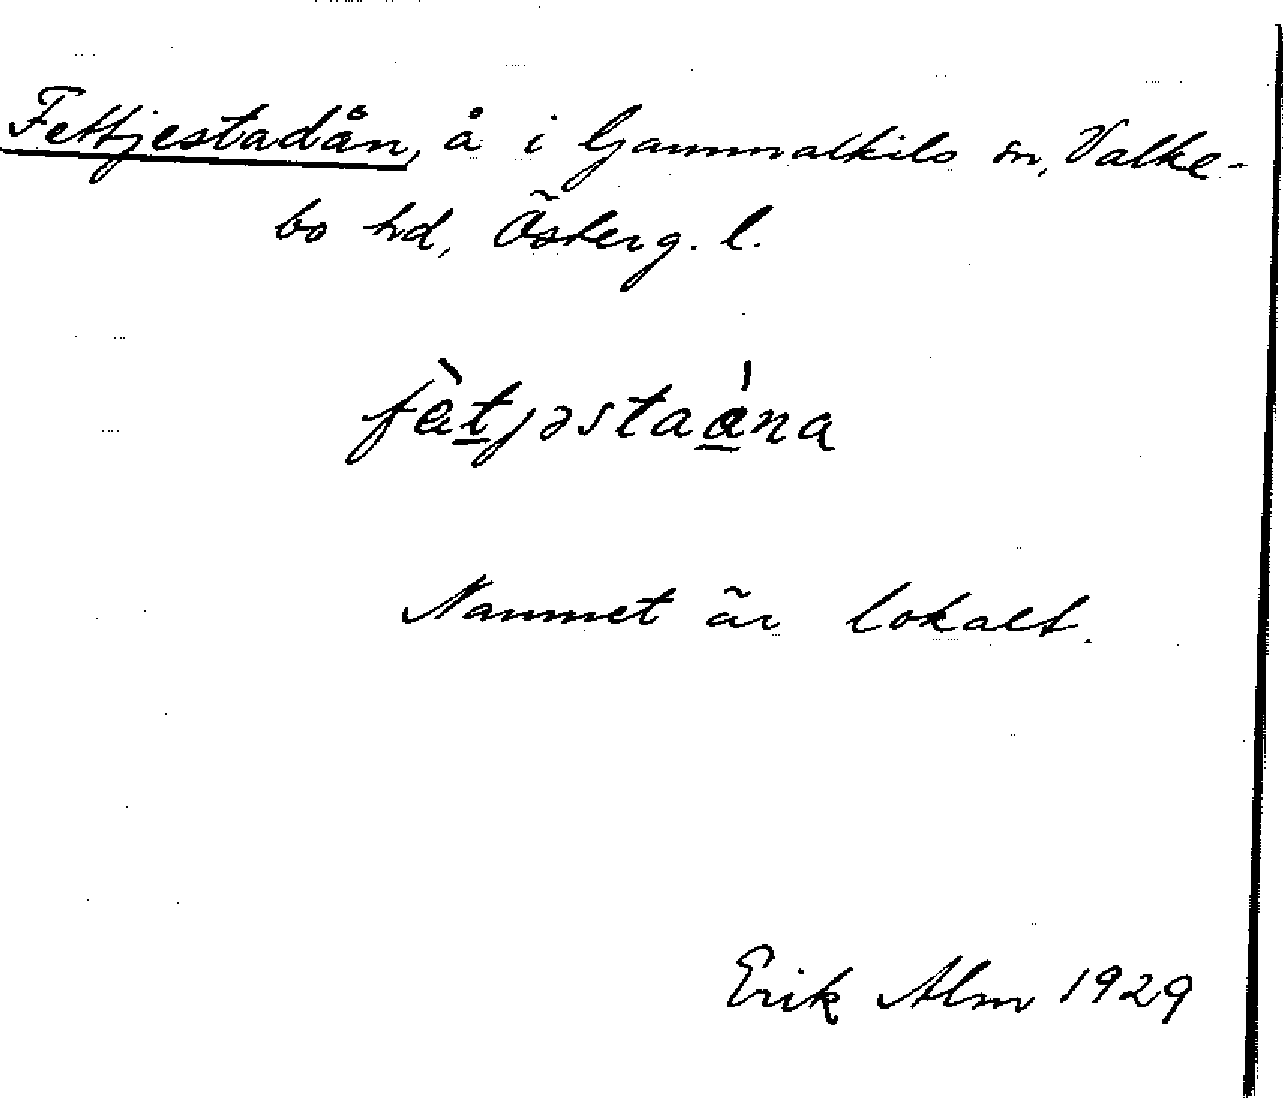 Fettjestadån, å i Gammalkils sn, Valke-
bo hd, Österg. l.
fæ̀t̲jəstaá̲na
Namnet är lokalt.
Erik Alm 1929